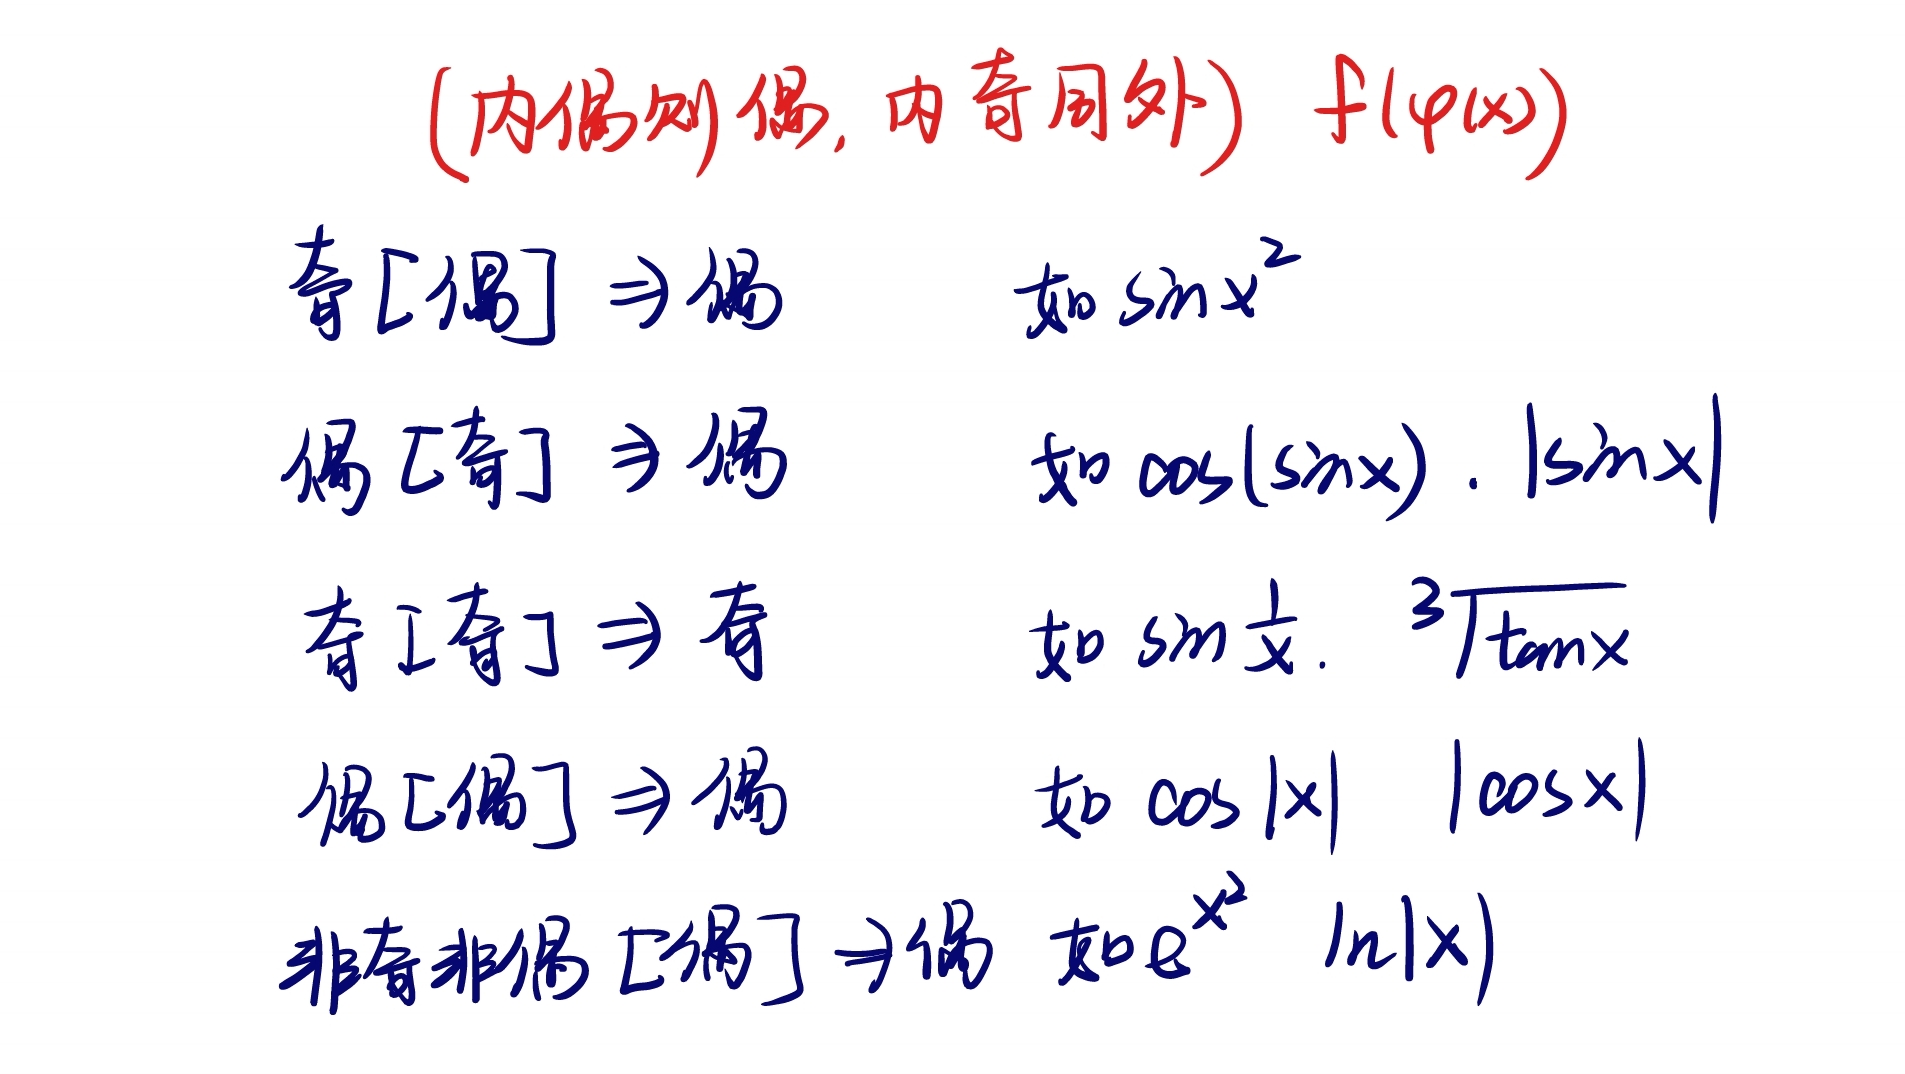 (内偶则偶,内奇同外) f(φ(x))
奇[偶]⇒偶 如 sin x²
偶[奇]⇒偶 如 cos(sinx). |sinx|
奇[奇]⇒奇 如 sin 1/x. ³√tanx
偶[偶]⇒偶 如 cos|x| |cosx|
非奇非偶[偶]⇒偶 如 e^x² ln|x|